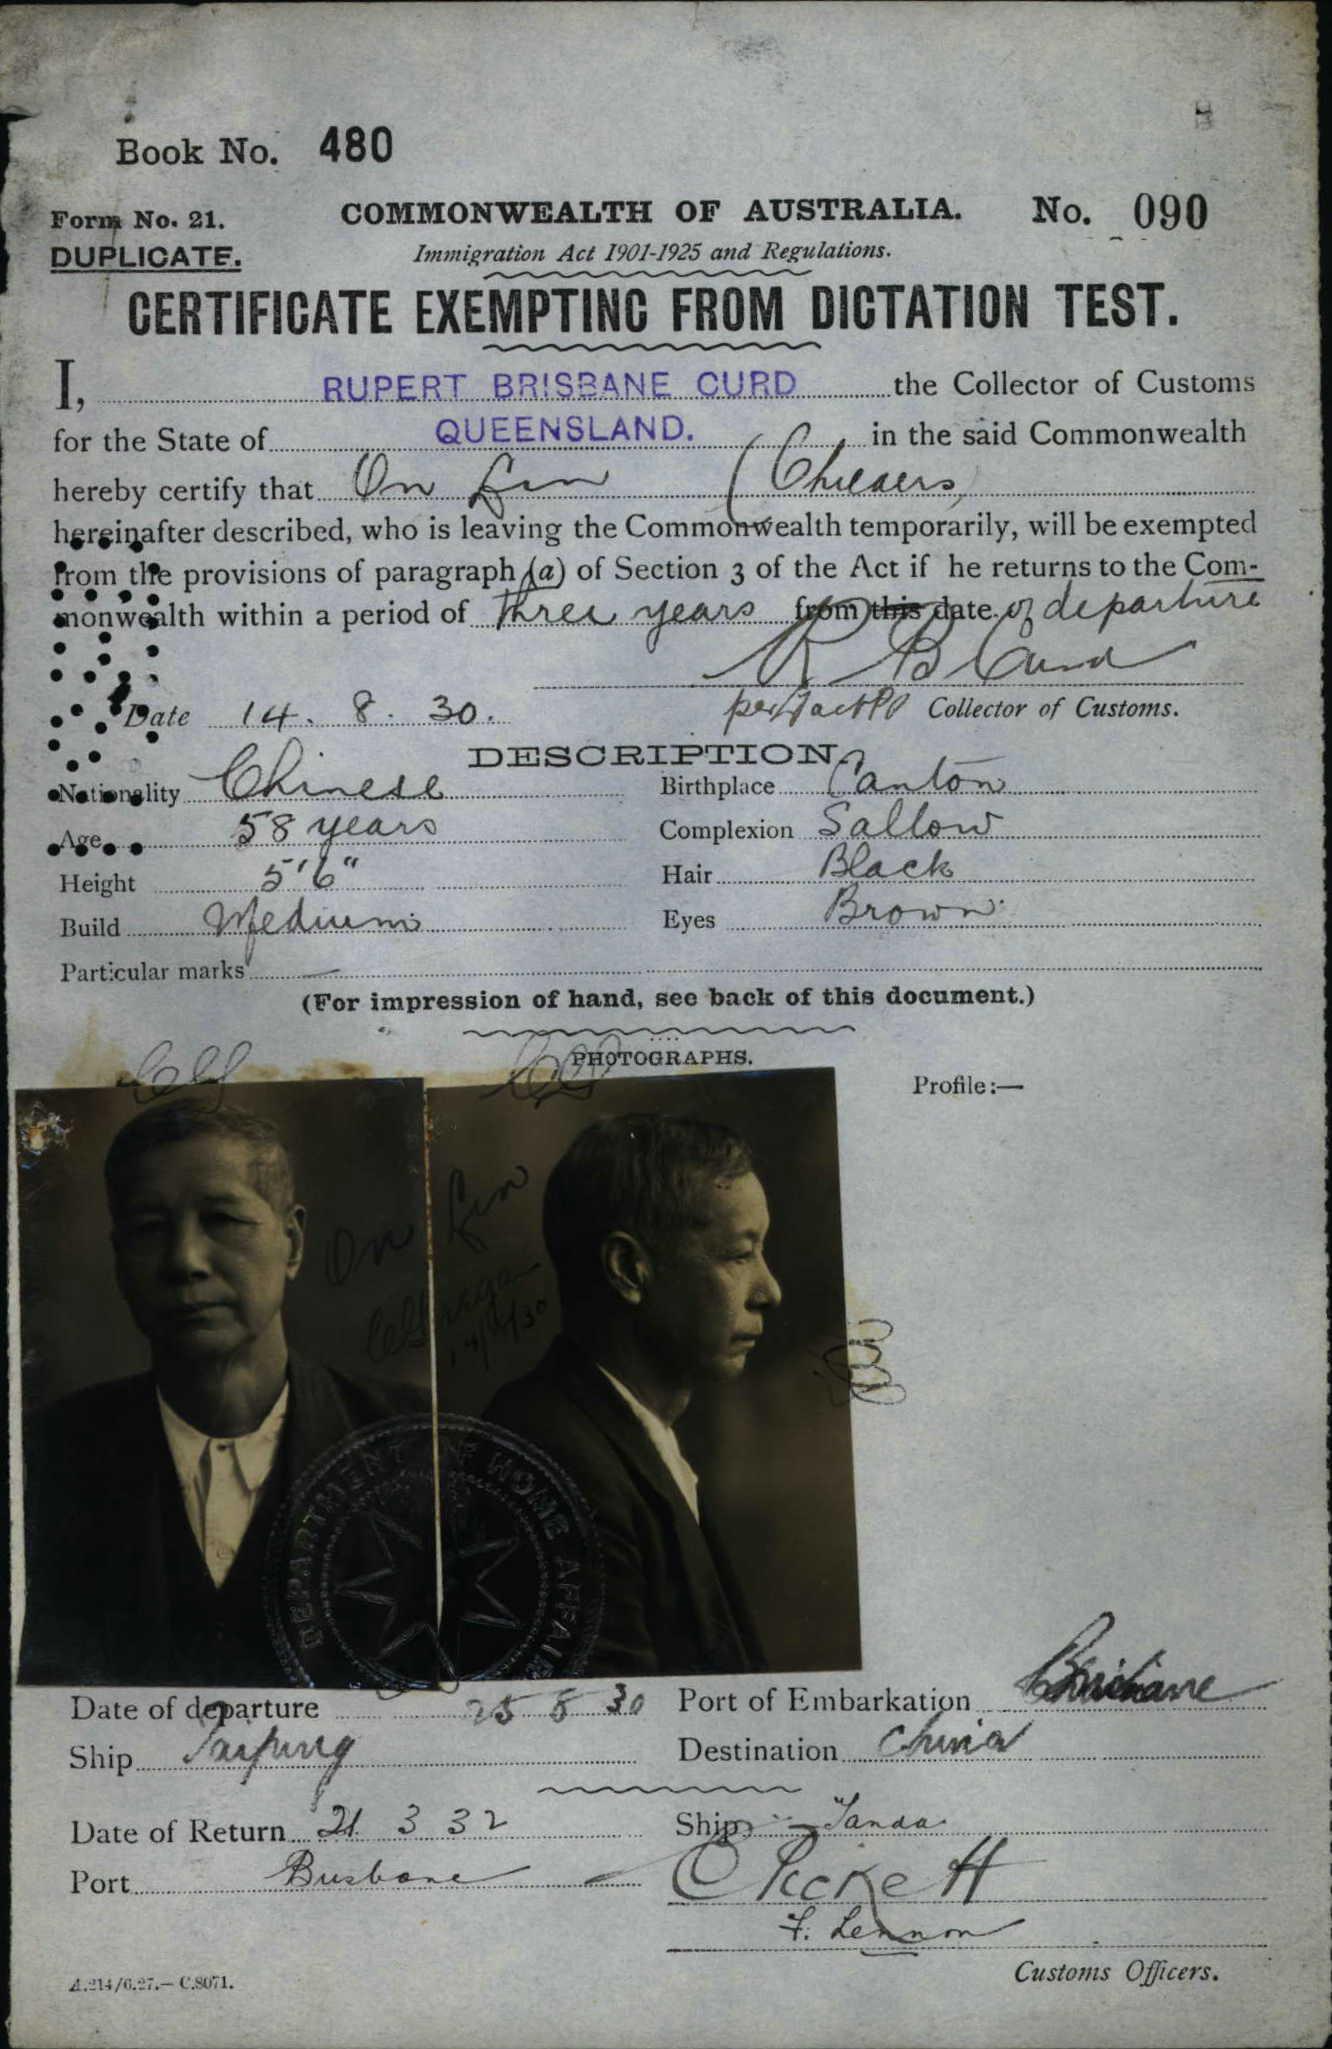 Book No. 480
Form No. 21. COMMONWEALTH OF AUSTRALIA. No. 090
DUPLICATE. Immigration Act 1901-1925 and Regulations.
CERTIFICATE EXEMPTING FROM DICTATION TEST.
I, RUPERT BRISBANE CURD the Collector of Customs
for the State of QUEENSLAND. in the said Commonwealth
hereby certify that On Lin (Childers)
hereinafter described, who is leaving the Commonwealth temporarily, will be exempted
from the provisions of paragraph (a) of Section 3 of the Act if he returns to the Com-
monwealth within a period of three years from this date of departure
R B Curd
Date 14. 8. 30. Collector of Customs.
DESCRIPTION
Nationality Chinese Birthplace Canton
Age 58 years Complexion Sallow
Height 5'6" Hair Black
Build Medium Eyes Brown
Particular marks —
(For impression of hand, see back of this document.)
PHOTOGRAPHS.
Profile:—
On Lin
DEPARTMENT OF HOME AFFAIRS
Date of departure 25 8 30 Port of Embarkation Brisbane
Ship Taiping Destination China
Date of Return 21 3 32 Ship Tanda
Port Brisbane C Pickett
F. Lennon
Customs Officers.
A.214/6.27.—C.8071.